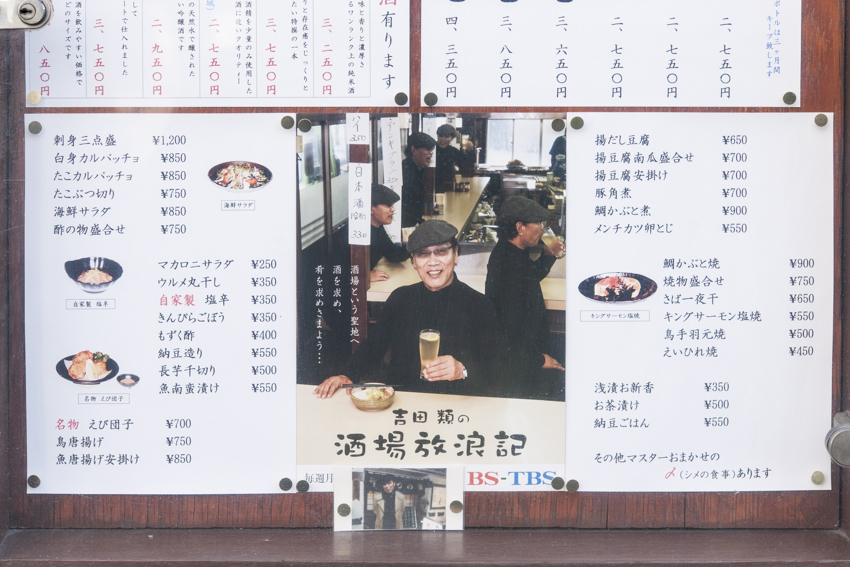 酒有ります
味と香りと濃厚さ
るワンランク上の純米酒
三、二五〇円
りと存在感をじっくりと
たい特撰の一本
三、七五〇円
酒精を少量のみ使用した
酒に近いクオリティー
二、七五〇円
の天然水で醸された
い吟醸酒です
二、九五〇円
して
ートで仕入れました
三、七五〇円
酒を飲みやすい価格で
どのサイズです
八五〇円
ボトルは三ヶ月間
キープ致します
二、七五〇円
二、七五〇円
二、七五〇円
三、六五〇円
三、八五〇円
四、三五〇円
刺身三点盛 ¥1,200
白身カルパッチョ ¥850
たこカルパッチョ ¥850
たこぶつ切り ¥750
海鮮サラダ ¥850
酢の物盛合せ ¥750
海鮮サラダ
マカロニサラダ ¥250
ウルメ丸干し ¥350
自家製 塩辛 ¥350
きんぴらごぼう ¥350
もずく酢 ¥400
納豆造り ¥550
長芋千切り ¥500
魚南蛮漬け ¥550
自家製 塩辛
名物 えび団子
名物 えび団子 ¥700
鳥唐揚げ ¥750
魚唐揚げ安掛け ¥850
日本酒
330
酒場という聖地へ
酒を求め、
肴を求めさまよう…
吉田類の
酒場放浪記
毎週月
BS-TBS
揚だし豆腐 ¥650
揚豆腐南瓜盛合せ ¥700
揚豆腐安掛け ¥700
豚角煮 ¥700
鯛かぶと煮 ¥900
メンチカツ卵とじ ¥550
鯛かぶと焼 ¥900
焼物盛合せ ¥750
さば一夜干 ¥650
キングサーモン塩焼 ¥550
鳥手羽元焼 ¥500
えいひれ焼 ¥450
キングサーモン塩焼
浅漬お新香 ¥350
お茶漬け ¥500
納豆ごはん ¥550
その他マスターおまかせの
〆(シメの食事)あります